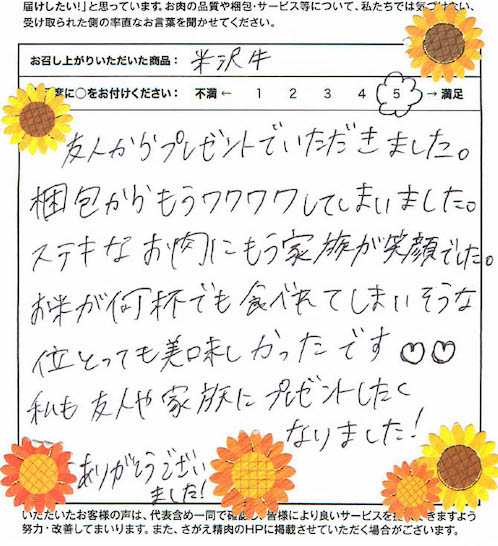 届けしたい!」と思っています。お肉の品質や梱包・サービス等について、私たちでは気づけない、
受け取られた側の率直なお言葉を聞かせてください。
お召し上がりいただいた商品: 米沢牛
度に○をお付けください: 不満 ← 1 2 3 4 5 → 満足
友人からプレゼントでいただきました。
梱包からもうワクワクしてしまいました。
ステキなお肉にもう家族が笑顔でした。
お米が何杯でも食べれてしまいそうな
位とっても美味しかったです♡♡
私も友人や家族にプレゼントしたく
なりました!
ありがとうござい
ました!
いただいたお客様の声は、代表含め一同で確認し、皆様により良いサービスを提できますよう
努力・改善してまいります。また、さがえ精肉のHPに掲載させていただく場合がございます。